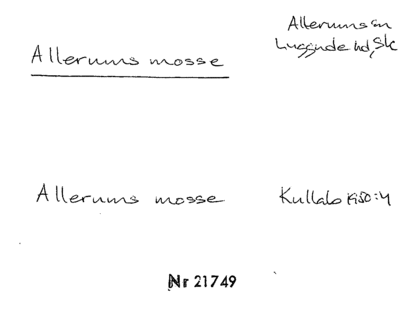 Allerums sn
Luggude hd, Sk
Allerums mosse
Allerums mosse
Kullabo 1950:4
Nr 21749